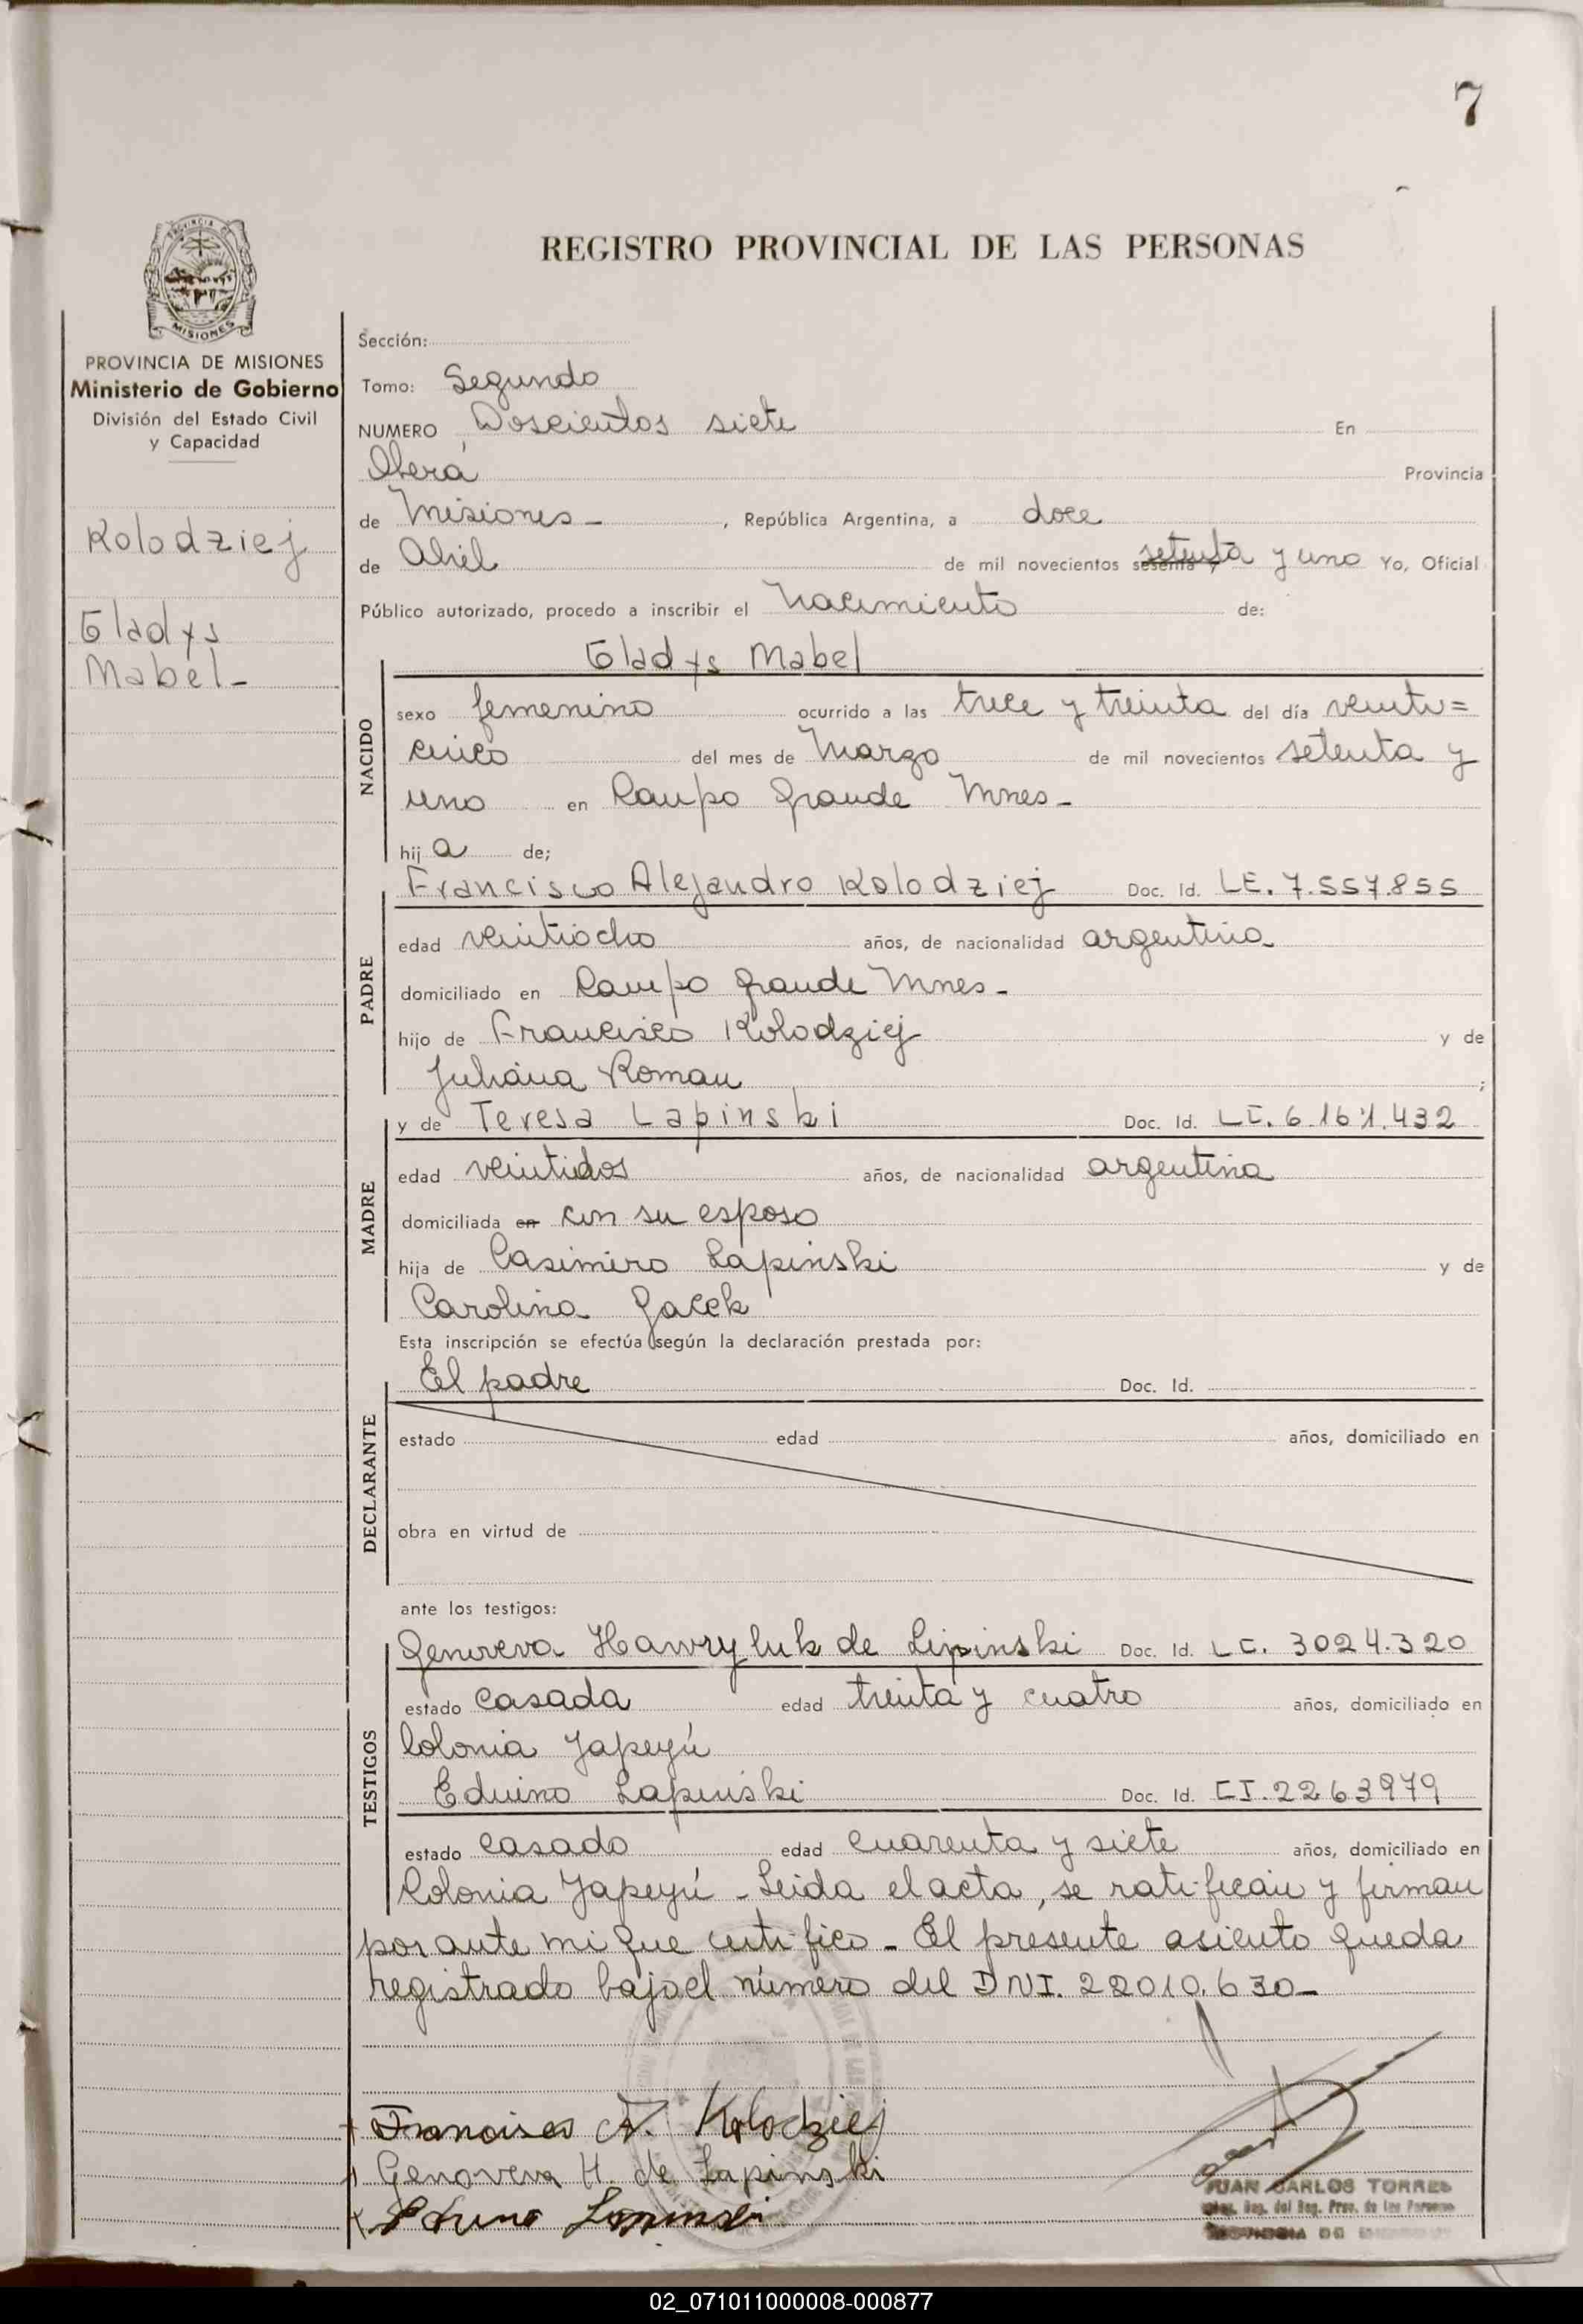 7
REGISTRO PROVINCIAL DE LAS PERSONAS
PROVINCIA DE
MISIONES
PROVINCIA DE MISIONES
Ministerio de Gobierno
División del Estado Civil
y Capacidad
Kolodziej
Gladys
Mabel-
Sección:
Tomo: Segundo
NUMERO Doscientos siete En
Oberá Provincia
de Misiones- , República Argentina, a doce
de Abril de mil novecientos sesenta y setenta y uno Yo, Oficial
Público autorizado, procedo a inscribir el Nacimiento de:
Gladys Mabel
NACIDO
sexo femenino ocurrido a las trece y treinta del día veinti=
cinco del mes de Marzo de mil novecientos setenta y
uno en Campo Grande Mnes-
hij a de;
PADRE
Francisco Alejandro Kolodziej Doc. Id. LE. 7.557.855
edad veintiocho años, de nacionalidad argentina
domiciliado en Campo Grande Mnes-
hijo de Francisco Kolodziej y de
Juliana Roman ;
MADRE
y de Teresa Lapinski Doc. Id. LC. 6.161.432
edad veintidos años, de nacionalidad argentina
domiciliada en con su esposo
hija de Casimiro Lapinski y de
Carolina Gacek
Esta inscripción se efectúa según la declaración prestada por:
DECLARANTE
El padre Doc. Id.
estado edad años, domiciliado en
obra en virtud de
ante los testigos:
TESTIGOS
Genoveva Hawryluk de Lipinski Doc. Id. LC. 3024.320
estado casada edad treinta y cuatro años, domiciliado en
Colonia Yapeyú
Eduino Lapinski Doc. Id. CI. 2263979
estado casado edad cuarenta y siete años, domiciliado en
Colonia Yapeyú - Leida el acta, se ratifican y firman
por ante mi que certifico - El presente asiento queda
registrado bajo el número del DNI. 22010.630-
Francisco A. Kolodziej
Genoveva H. de Lapinski
Eduino Lapinski
JUAN CARLOS TORRES
Reg. del Reg. Prov. de las Personas
PROVINCIA DE
02_071011000008-000877